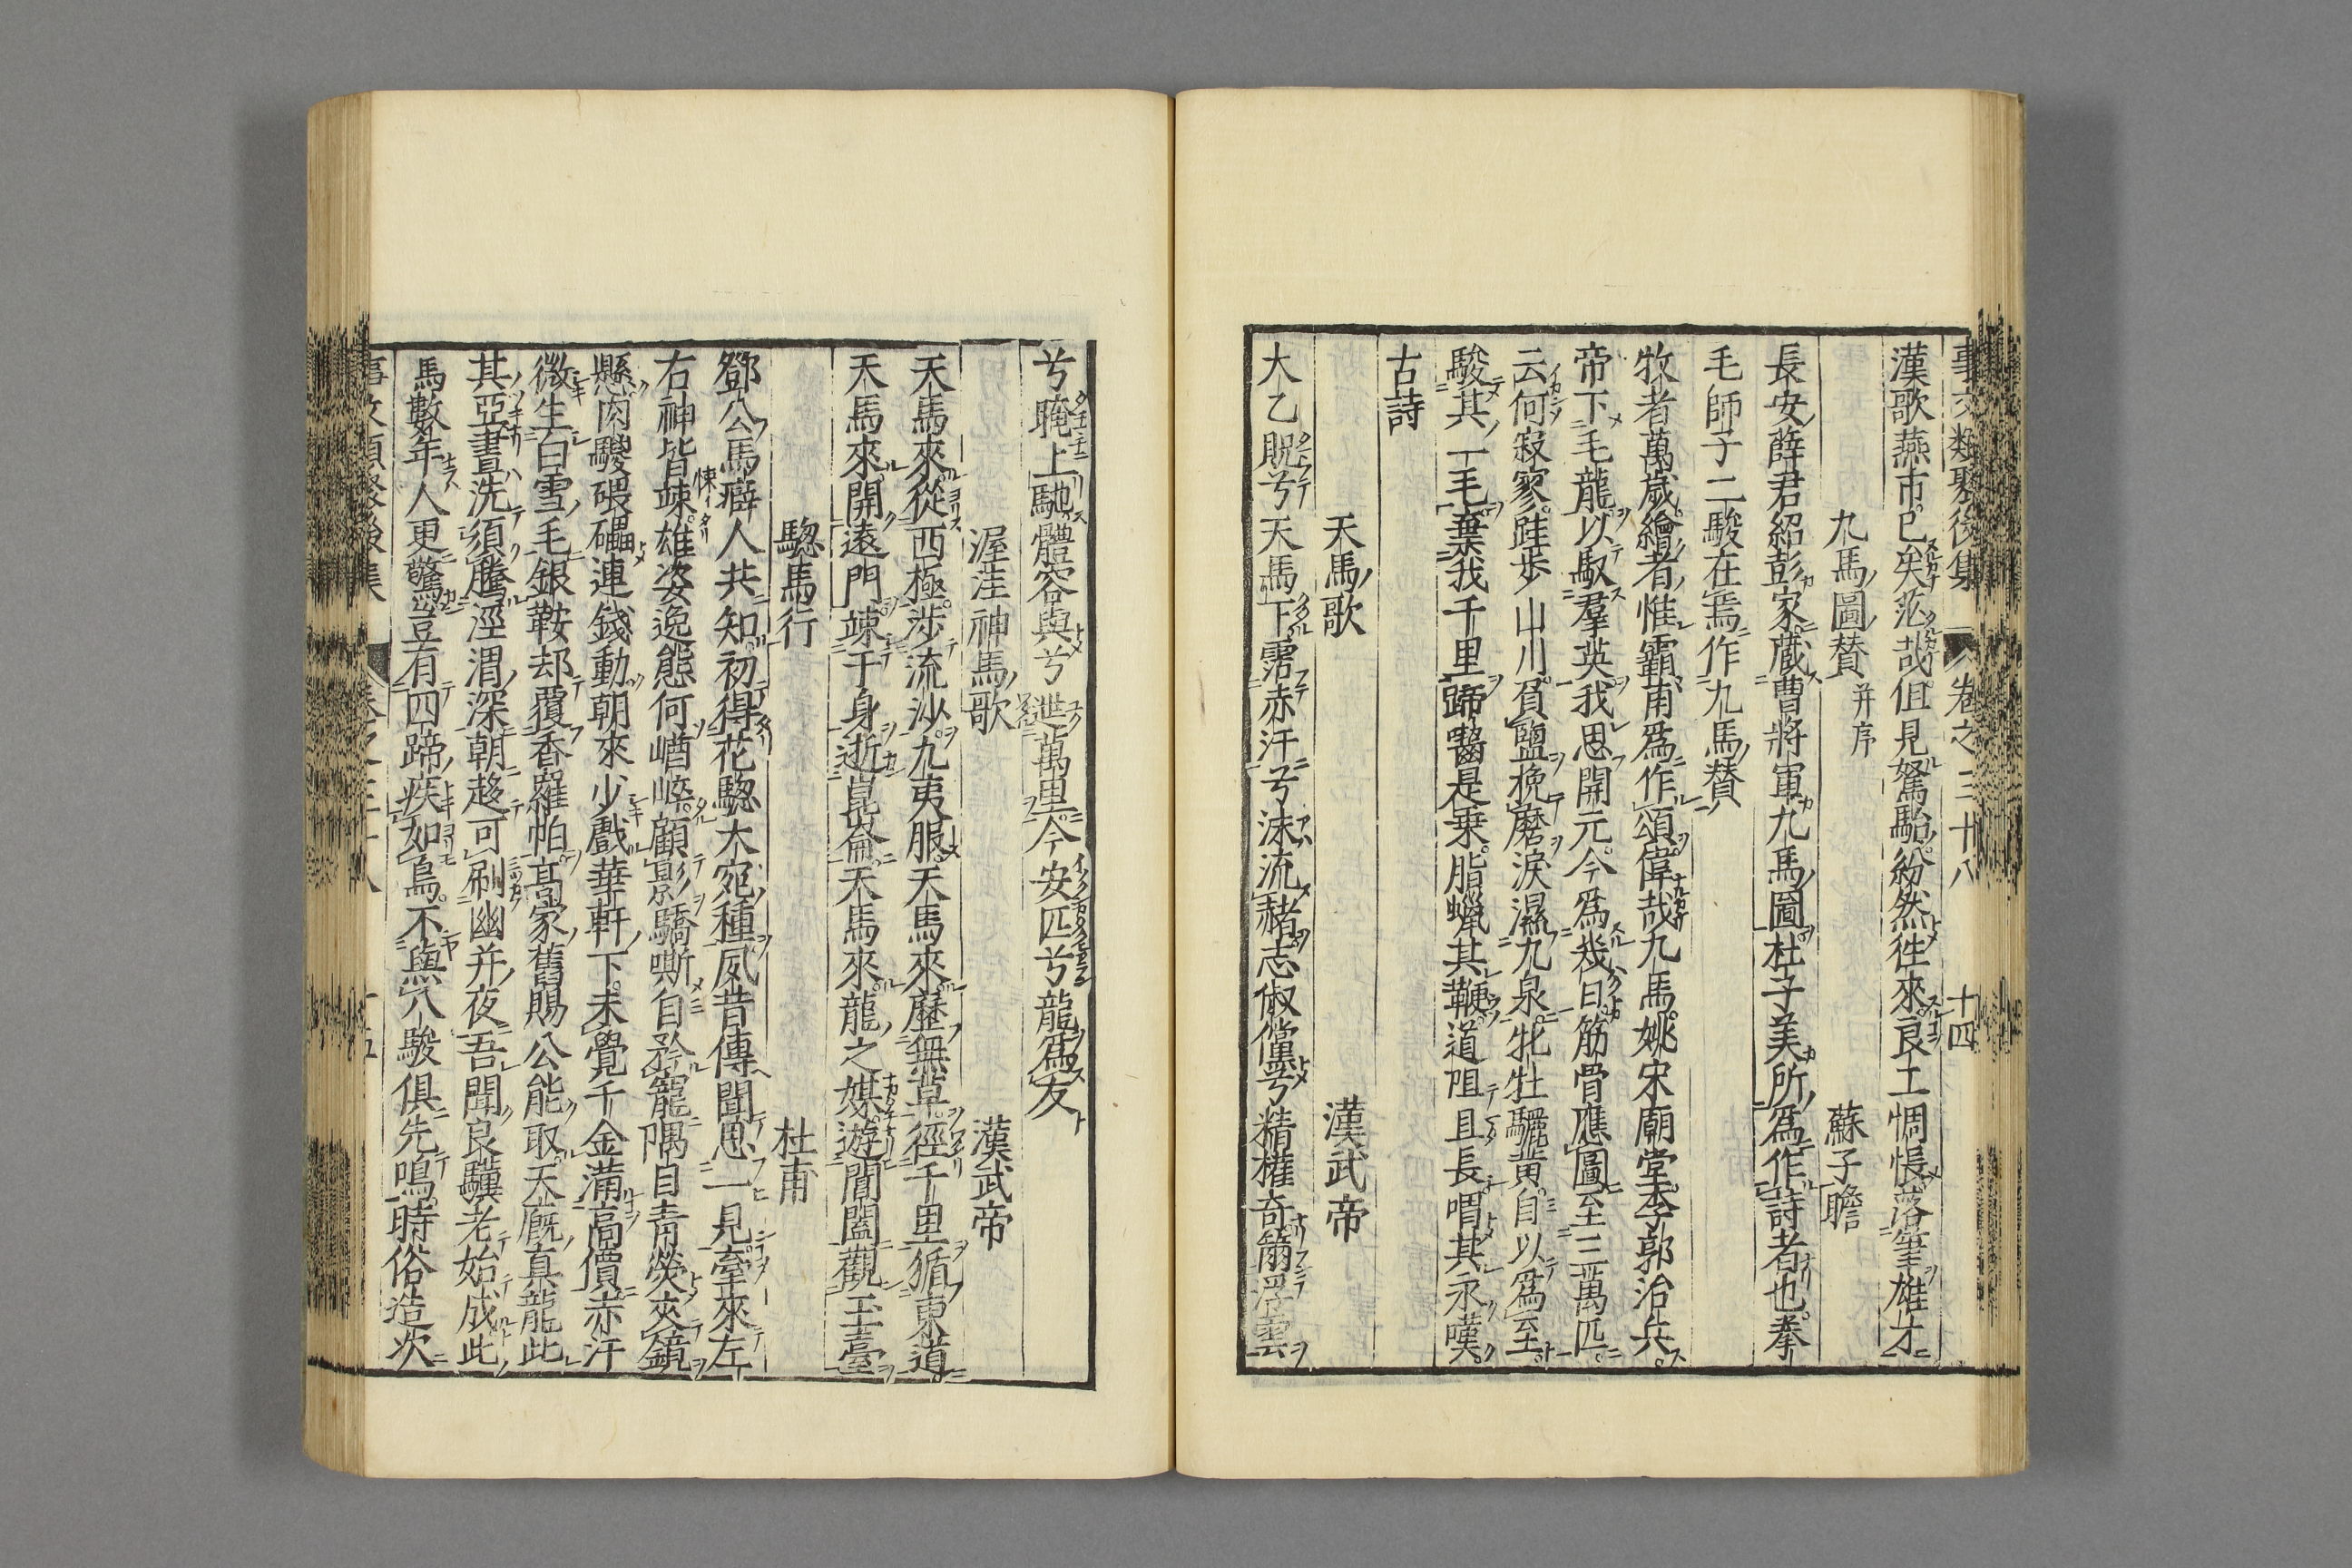 事文類聚後集 卷之三十八 十四
漢歌燕市已矣茫哉但見駑駘紛然徃來良工惆悵落筆雄才
九馬圖贊 并序 蘇子瞻
長安薛君紹彭家藏曹將軍九馬圖杜子美所爲作詩者也拳
毛師子二駿在焉作九馬贊
牧者萬歲繪者惟霸甫爲作頌偉哉九馬姚宋廟堂李郭治兵
帝下毛龍以馭羣英我思開元今爲幾日筋骨應圖至三萬匹
云何寂寥跬步山川負鹽挽磨淚濕九泉牝牡驪黄自以爲至
駿其一毛棄我千里蹄齧是乗脂蠟其鞭道阻且長喟其永嘆
古詩
天馬歌 漢武帝
大乙貺兮天馬下霑赤汗兮沫流赭志俶儻兮精權奇籋浮雲
兮晻上馳體容與兮迣萬里今安匹兮龍爲友
渥洼神馬歌 漢武帝
天馬來從西極涉流沙九夷服天馬來歷無草徑千里循東道
天馬來開遠門竦予身逝崑崙天馬來龍之媒遊閶闔觀玉臺
騘馬行 杜甫
鄧公馬癖人共知初得花騘大宛種夙昔傳聞思一見牽來左
右神皆竦雄姿逸態何崷崪顧影驕嘶自矜寵隅目青熒夾鏡
懸肉騣碨礧連錢動朝來少戲華軒下未覺千金滿高價赤汗
微生白雪毛銀鞍却覆香羅帕髙家舊賜公能取天廐真龍此
其亞晝洗須騰涇渭深朝趍可刷幽并夜吾聞良驥老始成此
馬數年人更驚豈有四蹄疾如鳥不與八駿俱先鳴時俗造次